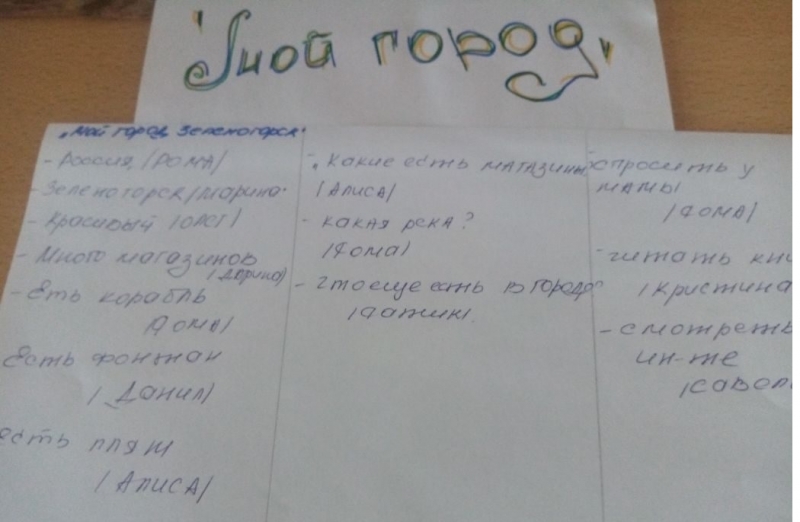 "Мой город"
"Мой город Зеленогорск"
- Россия, /РОМА/
- Зеленогорск /Марина
- Красивый /ОЛЕГ/
- Много магазинов
/Дарина/
- Еть корабль
/РОМА/
Есть фонтан
/Данил/
есть пляж
/АЛИСА/
- какие есть магазины
/АЛИСА/
- какая река?
/Рома/
- что еще есть в городе
/Фатих/
- спросить у
мамы
/РОМА/
- читать кни
/Кристина
- смотреть
ин-те
/савел